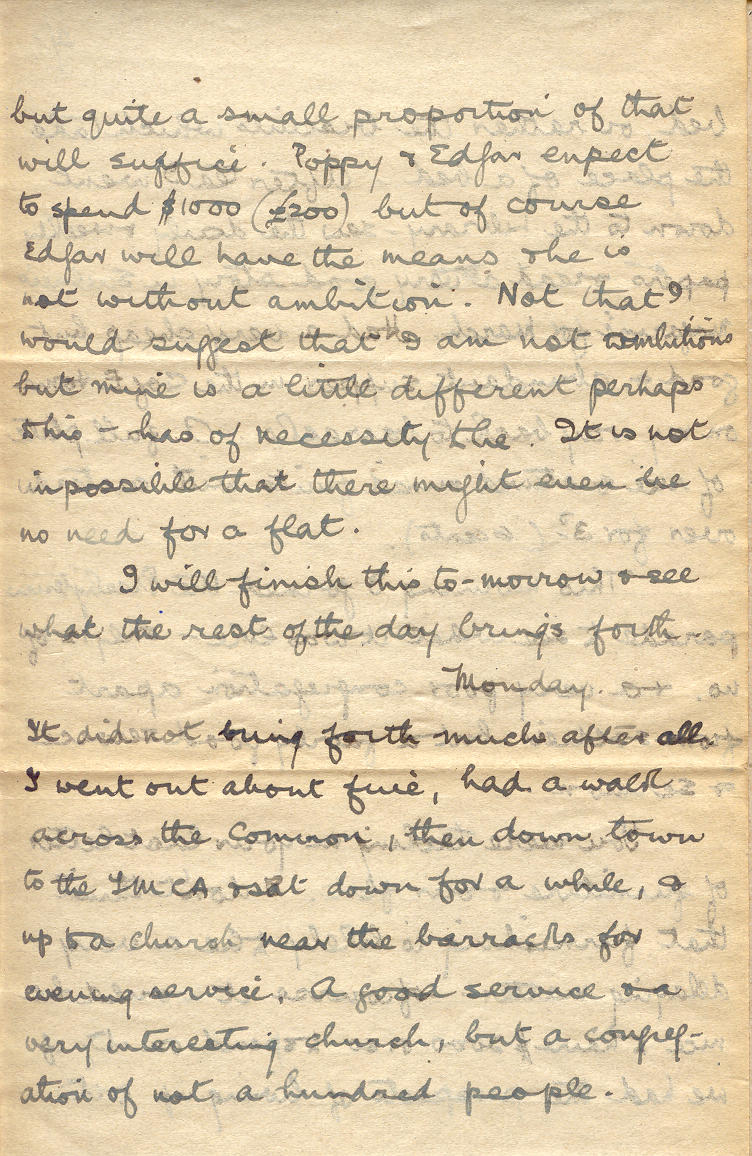 but quite a small proportion of that
will suffice. Poppy & Edgar expect
to spend $1000 (£200) but of course
Edgar will have the means & he is
not without ambition. Not that I
would suggest that I am not ambitious
but mine is a little different perhaps
this - has of necessity to be. It is not
impossible that there might even be
no need for a flat.
I will finish this to-morrow & see
what the rest of the day brings forth.
Monday.
It did not bring forth much after all.
I went out about five, had a walk
across the Common, then down town
to the YMCA & sat down for a while, &
up to a church near the barracks for
evening service. A good service & a
very interesting church, but a congreg-
ation of not a hundred people.